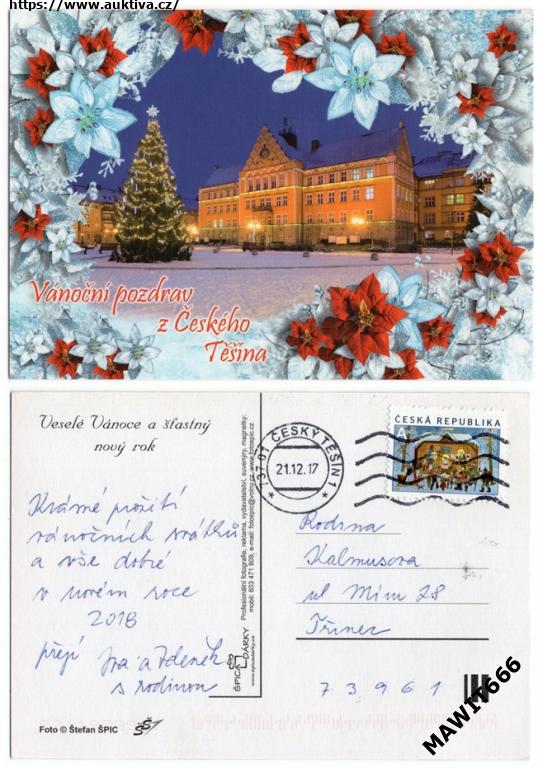 https://www.auktiva.cz/
Vánoční pozdrav
z Českého
Těšína
Veselé Vánoce a šťastný
nový rok
Krásné prožití
vánočních svátků
a vše dobré
v novém roce
2018
přejí Iva a Zdeněk
s rodinou
Foto © Štefan ŠPIC
ŠPICL DÁRKY
www.spicldarky.cz
Profesionální fotografie, reklama, vydavatelství, suvenýry, magnetky;
mobil: 603 471 809, e-mail: fotospic@volny.cz, www.fotospic.cz
737 01 ČESKÝ TĚŠÍN 1
21.12.17
ČESKÁ REPUBLIKA
A
Rodina
Kalmusova
ul Míru 28
Třinec
73961
MAWIT666